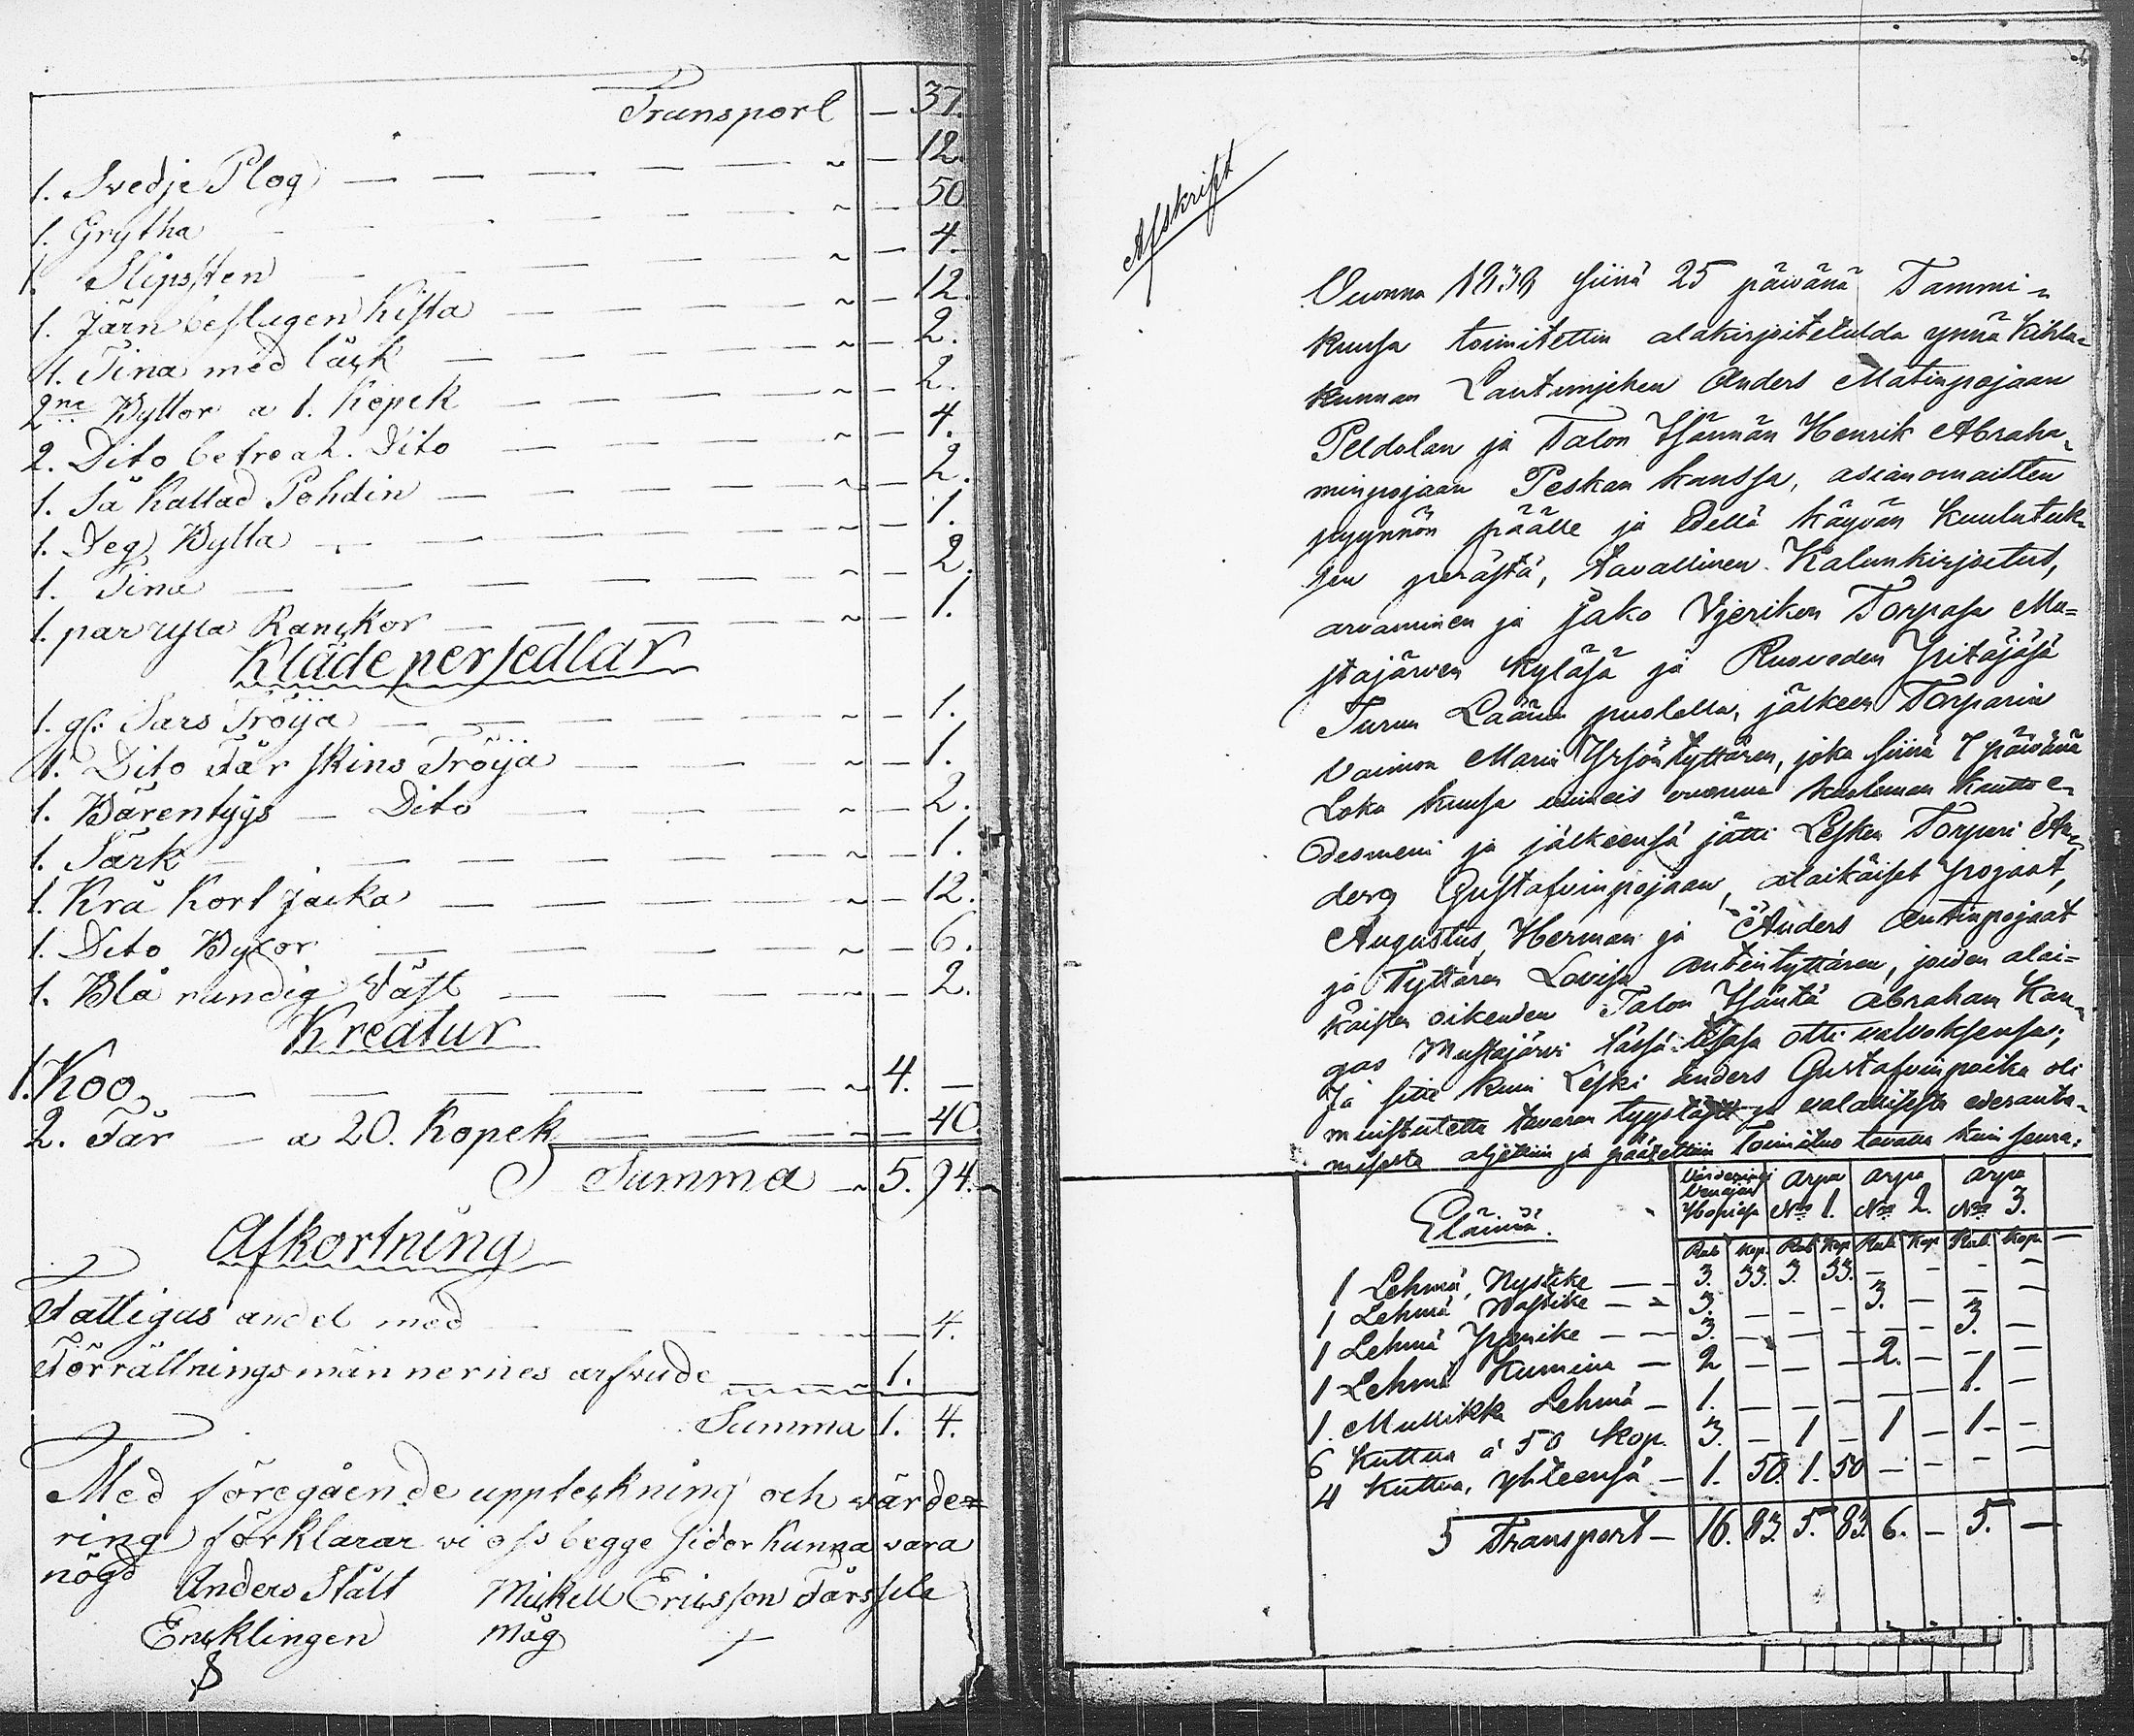 Transport — 37.
1. Svedje Plog — — — — — ~ — 12.
1. Grytha — — — — ~ — 50
1. Slipsten — — — — ~ — 4.
1. Järn beslagen Kista — — — ~ — 12.
1. Tina med låck — — — — ~ — 2.
2ne Byttor a 1. Kopek — — — ~ — 2.
2. Dito betre a 2. Dito — — — ~ — 4.
1. Så Kallad Pohdin — — — — ~ — 2.
1. Deg Bytta — — — — ~ — 1.
1. Tina — — — — — ~ — 2.
1. par Ranckor — — — — ~ — 1.
Kläde persedlar
1. gl: Sars Tröija — — — — ~ — 1.
1. Dito Får skins Tröija — — — ~ — 1.
1. Bärentygs — Dito — — — ~ — 2.
1. Särk — — — — — ~ — 1.
1. Krå Kort jacka — — — — ~ — 12.
1. Dito Byxor — — — — ~ — 6.
1. Blå randig Väst — — — ~ — 2.
Kreatur
1. Koo — — — — — ~ 4. —
2. Får — a 20. Kopek — — — — 40.
Summa ~ 5. 94.
Afkortning
Fattigas andel med — — — — 4.
Förrättningsmännernes arfvude — 1.
Summa 1. 4.
Med föregående uppteckning och värde=
ring förklarar vi oss begge sidor kunna vara
nögd
Anders Stålt Mickell Ericsson
Enklingen Måg +
Afskrift
Vuonna 1839 siinä 25 päivänä Tammi=
kuusa toimitettin alakirjoitetulda ynnä Kihla=
kunnan Lautimjehen Anders Matinpojaan
Peldolan ja Talon Isännän Henrik Abraha=
minpojaan Peskan kanssa, asianomaisten
pyynnön päälle ja Edellä käyvän Kuulutuk=
sen perästä, tavallinen Kalunkirjoitus,
arvaminen ja Jako Vjerikon Torpasa Mu=
stajärven Kyläsä ja Ruoveden Pitäjäsä
Turun Läänin puolella, jälkeen Torparin
Vaimon Maria Yrjöntyttären, joka siinä 7 päivänä
Loka kuusa viimeis vuonna kuoleman kautto e=
desmeni ja jälkeensä jätti Lesken Torpari An=
ders Gustafvinpojaan, alaikäiset pojaat,
Augustus, Herman ja Anders Antinpojaat
ja Tyttären Lovisa Antintyttären, joiden alai=
käisten oikeuden Talon Isäntä Abraham Kan=
gas Mustajärvi tässä otti valvoksensa;
Ja sitte kuin Leski Anders Gustafvinpoika oli
muistutettu tavaran ja
misesta aljettiin ja päätettiin Toimitus tavalla kuin seura:
Eläimiä.
Värderingi Venäjän Hopiasa Arpa No 1. Arpa No 2. Arpa No 3.
Rub Kop. Rub Kop Rub Kop Rub Kop.
1 Lehmä, Nystike — — 3. 33. 3. 33. — — — —
1 Lehmä — — 3. — — — 3. — — —
1 Lehmä — — 3. — — — — — 3. —
1 Lehmä Kumina — 2 — — — 2. — — —
1. Mullikka Lehmä — 1. — — — — — 1. —
6 Kuttua á 50 Kop. 3. — 1 — 1 — 1 —
4 Kuttua, yhteensä — 1. 50. 1. 50 — — — —
Transport — 16. 83. 5. 83. 6. — 5. —